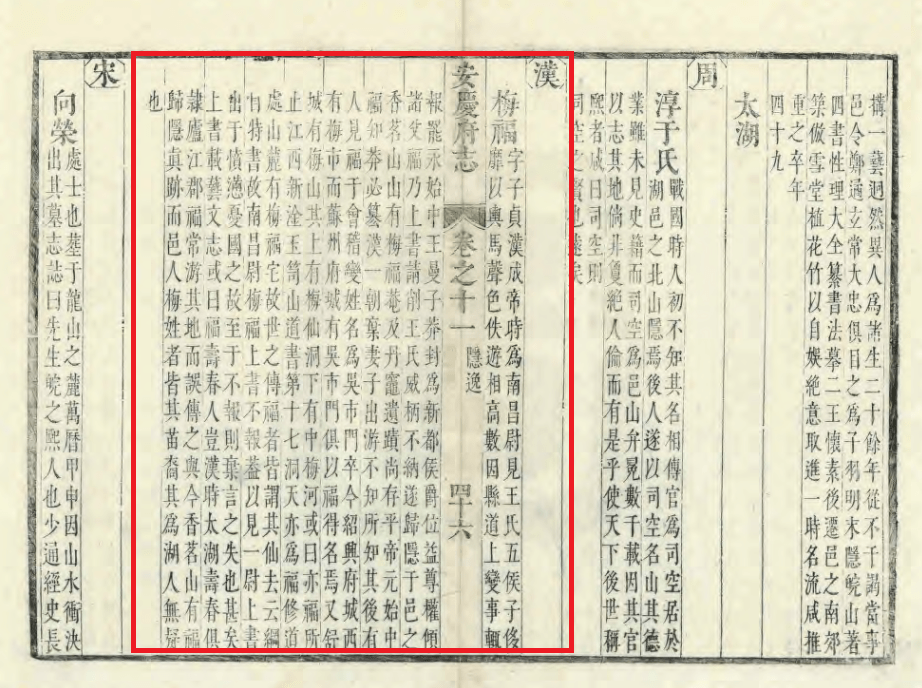 搆一藝迥然異人爲諸生二十餘年從不干謁當事
邑令鄭遹立常大忠俱目之爲子羽明末隱皖山著
四書性理大全纂書法摹二王懷素後遷邑之南郊
築倣雪堂植花竹以自娛絶意取進一時名流咸推
重之卒年
四十九
太湖
周
淳于氏戰國時人初不知其名相傳官爲司空居於
湖邑之北山隱焉後人遂以司空名山其德
業雖未見史籍而司空爲邑山弁冕數千載因其官
以志其地倘非夐絶人倫而有是乎使天下後世稱
熙者咸曰司空則
司空之賢也遠矣
漢
梅福字子貞漢成帝時爲南昌尉見王氏五侯子侈
靡以輿馬聲色佚遊相高數因縣道上變事輒
安慶府志 卷之十一 隱逸 四十六
報罷永始中王曼子莽封爲新都侯爵位益尊權傾
諸父福乃上書請削王氏威柄不納遂歸隱于邑之
香茗山山有梅福菴及丹竈遺蹟尚存平帝元始中
福知莽必簒漢一朝棄妻子出游不知所知其後有
人見福于會稽變姓名爲吳市門卒今紹興府城西
有梅市而蘇州府城有吳市門俱以福得名焉又舒
城有梅山其上有梅仙洞下有中梅河或曰亦福所
止江西新淦玉笥山道書第十七洞天亦爲福修道
處山麓有梅福宅故世之傳福者皆謂其仙去云綱
目特書故南昌尉梅福上書不報蓋以見一尉上書
出于憤懣憂國之故至于不報則棄言之失也甚矣
上書載藝文志或曰福壽春人豈漢時太湖壽春俱
隷廬江郡福常游其地而誤傳之與今香茗山有福
歸隱眞跡而邑人梅姓者皆其苗裔其爲湖人無疑
也
宋
向榮處士也墓于龍山之麓萬曆甲申因山水衝決
出其墓志誌曰先生皖之熙人也少通經史長